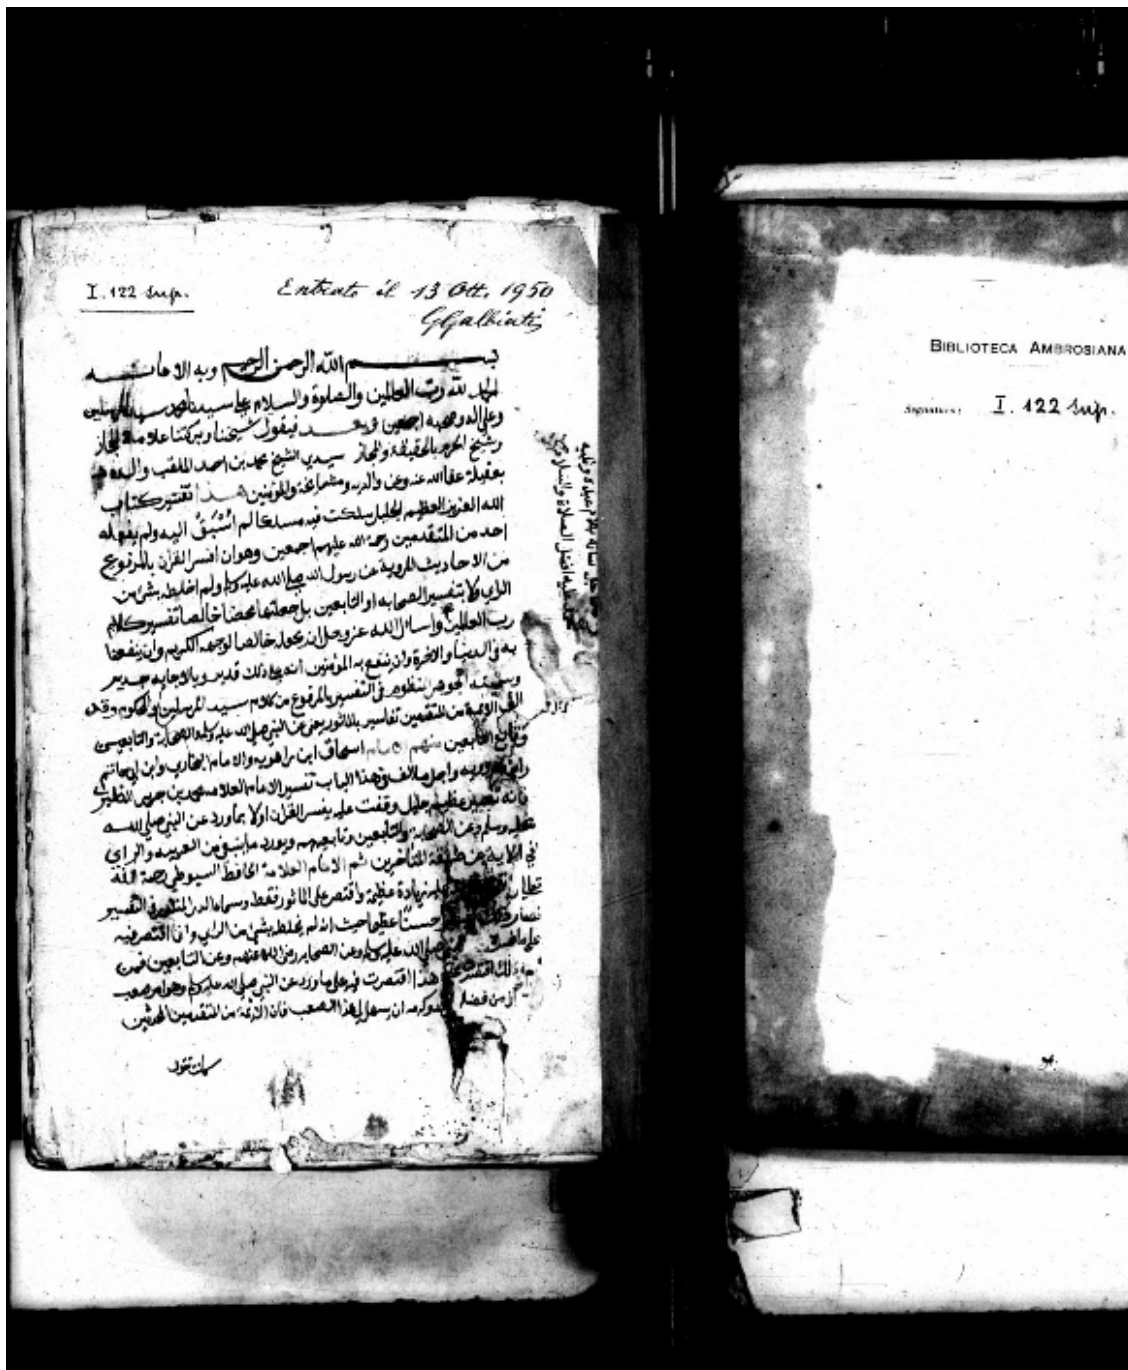 I. 122 Sup.
Entrato il 13 Ott. 1950
GGalbiati
بسم الله الرحمن الرحيم وبه الاعانه
الحمد لله رب العالمين والصلوة والسلام على سيدنا محمد سيد المرسلين
وعلى اله وصحبه اجمعين وبعد فيقول شيخنا وبركتنا علامة الحجاز
وشيخ الحرم بالحقيقة والمجاز سيدي الشيخ محمد بن احمد الملقب والده
بعقيلة عفا الله عنه وعن والديه ومشايخه والمؤمنين هذا تفسير كتاب
الله العزيز العظيم الجليل سلكت فيه مسلكا لم اسبق اليه ولم يفعله
احد من المتقدمين رحمة الله عليهم اجمعين وهو ان افسر القران بالمرفوع
من الاحاديث المروية عن رسول الله صلى الله عليه وسلم ولم اخلطه بشئ من
الراي ولا بتفسير الصحابه او التابعين بل جعلتها محضا خالصا تفسير كلام
رب العالمين واسال الله عز وجل ان يجعله خالصا لوجهه الكريم وان ينفعنا
به في الدنيا والاخرة وان ينفع به المؤمنين انه على ذلك قدير وبالاجابه جدير
وسميته الجوهر المنظوم في التفسير بالمرفوع من كلام سيد المرسلين والمحكوم وقد
الف الائمة من المتقدمين تفاسير بالماثور يعني عن النبي صلى الله عليه وسلم والصحابة والتابعين
التابعين منهم اسحاق ابن راهويه والامام البخاري وابن ابي حاتم
واجل ما الف في هذا الباب تفسير الامام العلامة محمد بن جرير الطبري
فانه تفسير عظيم جليل وقفت عليه يفسر القران اولا بما ورد عن النبي صلى الله
عليه وسلم وعن الصحابة والتابعين وتابعيهم ويورد ما بقي من العربيه والراي
المتاخرين ثم الامام العلامة الحافظ السيوطي رحمة الله
زيادة عظيمة واقتصر على الماثور فقط وسماه الدر المنثور في التفسير
حسنا عظيما حيث انه لم يخلطه بشئ من الراي وانما اقتصر فيه
صلى الله عليه وسلم وعن الصحابه رضي الله عنهم وعن التابعين فمن
هذا اقتصرت فيه على ما ورد عن النبي صلى الله عليه وسلم وهو امر صعب
من فضله وكرمه ان يسهل لي هذا الصعب فان الائمة من المتقدمين المحدثين
عليه افضل الصلاة والسلام
BIBLIOTECA AMBROSIANA
Segnatura: I. 122 Sup.